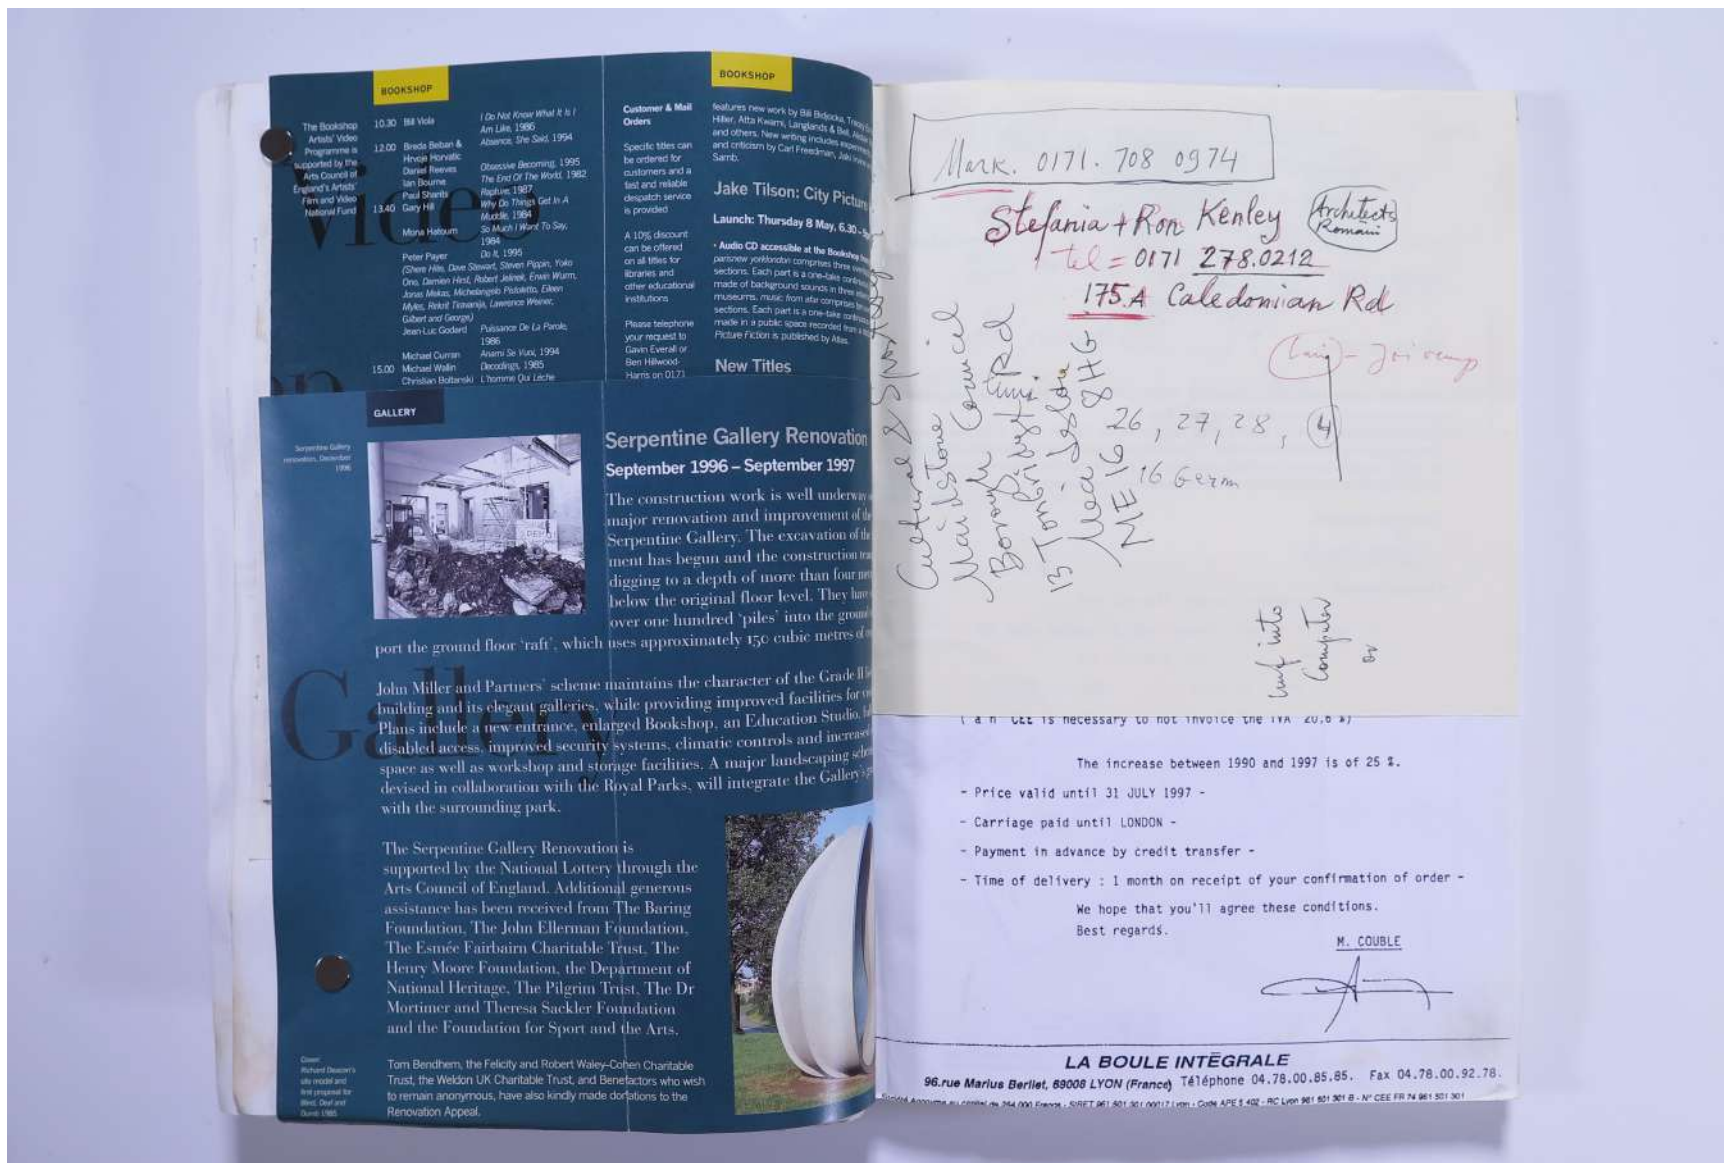 BOOKSHOP
The Bookshop
Artists' Video
Programme is
supported by the
Arts Council of
England's Artists'
Film and Video
National Fund
Video
10.30 Bill Viola
I Do Not Know What It Is I
Am Like, 1986
Absence, She Said, 1994
12.00 Breda Beban &
Hrvoje Horvatic
Daniel Reeves
Obsessive Becoming, 1995
Ian Bourne
The End Of The World, 1982
Paul Sharits
Rapture, 1987
13.40 Gary Hill
Why Do Things Get In A
Muddle, 1984
Mona Hatoum
So Much I Want To Say,
1984
Peter Payer
Do It, 1995
(Shere Hite, Dave Stewart, Steven Pippin, Yoko
Ono, Damien Hirst, Robert Jelinek, Erwin Wurm,
Jonas Mekas, Michelangelo Pistoletto, Eileen
Myles, Rirkrit Tiravanija, Lawrence Weiner,
Gilbert and George)
Jean-Luc Godard
Puissance De La Parole,
1986
Michael Curran
Anami Se Vuoi, 1994
15.00 Michael Wallin
Decodings, 1985
Christian Boltanski
L'homme Qui Lèche
Customer & Mail
Orders
Specific titles can
be ordered for
customers and a
fast and reliable
despatch service
is provided
A 10% discount
can be offered
on all titles for
libraries and
other educational
institutions
Please telephone
your request to
Gavin Everall or
Ben Hillwood-
Harris on 0171
BOOKSHOP
features new work by Bili Bidjocka,
Hiller, Atta Kwami, Langlands & Bell,
and others. New writing includes
and criticism by Carl Freedman,
Samb.
Jake Tilson: City Picture
Launch: Thursday 8 May, 6.30
• Audio CD accessible at the Bookshop
parisnewyorklondon comprises three
sections. Each part is a one-take
made of background sounds in three
museums, music from afar comprises
sections. Each part is a one-take
made in a public space recorded from a
Picture Fiction is published by Atlas.
New Titles
GALLERY
Serpentine Gallery
renovation, December
1996
Serpentine Gallery Renovation
September 1996 – September 1997
The construction work is well underway
major renovation and improvement of the
Serpentine Gallery. The excavation of the
ment has begun and the construction
digging to a depth of more than four
below the original floor level. They have
over one hundred 'piles' into the ground
port the ground floor 'raft', which uses approximately 150 cubic metres of
Gallery
John Miller and Partners' scheme maintains the character of the Grade II
building and its elegant galleries, while providing improved facilities for
Plans include a new entrance, enlarged Bookshop, an Education Studio,
disabled access, improved security systems, climatic controls and increased
space as well as workshop and storage facilities. A major landscaping
devised in collaboration with the Royal Parks, will integrate the Gallery's
with the surrounding park.
The Serpentine Gallery Renovation is
supported by the National Lottery through the
Arts Council of England. Additional generous
assistance has been received from The Baring
Foundation, The John Ellerman Foundation,
The Esmée Fairbairn Charitable Trust, The
Henry Moore Foundation, the Department of
National Heritage, The Pilgrim Trust, The Dr
Mortimer and Theresa Sackler Foundation
and the Foundation for Sport and the Arts.
Cover:
Richard Deacon's
site model and
first proposal for
Blind, Deaf and
Dumb 1985
Tom Bendhem, the Felicity and Robert Waley-Cohen Charitable
Trust, the Weldon UK Charitable Trust, and Benefactors who wish
to remain anonymous, have also kindly made donations to the
Renovation Appeal.
Mark. 0171. 708 0974
Stefania + Ron Kenley
Architects
Romain
tel = 0171 278.0212
175.A Caledonian Rd
Cultural &
Maidstone
Borough Council
13 Tonbridge Rd
Maidstone
ME 16 8HG
26, 27, 28, 4
16 Germ
into
Computer
or
CEE is necessary to not invoice the TVA 20,6 %)
The increase between 1990 and 1997 is of 25 %.
- Price valid until 31 JULY 1997 -
- Carriage paid until LONDON -
- Payment in advance by credit transfer -
- Time of delivery : 1 month on receipt of your confirmation of order -
We hope that you'll agree these conditions.
Best regards.
M. COUBLE
LA BOULE INTÉGRALE
96.rue Marius Berliet, 69008 LYON (France) Téléphone 04.78.00.85.85. Fax 04.78.00.92.78.
RC Lyon 961 501 301 B - N° CEE FR 74 961 501 301